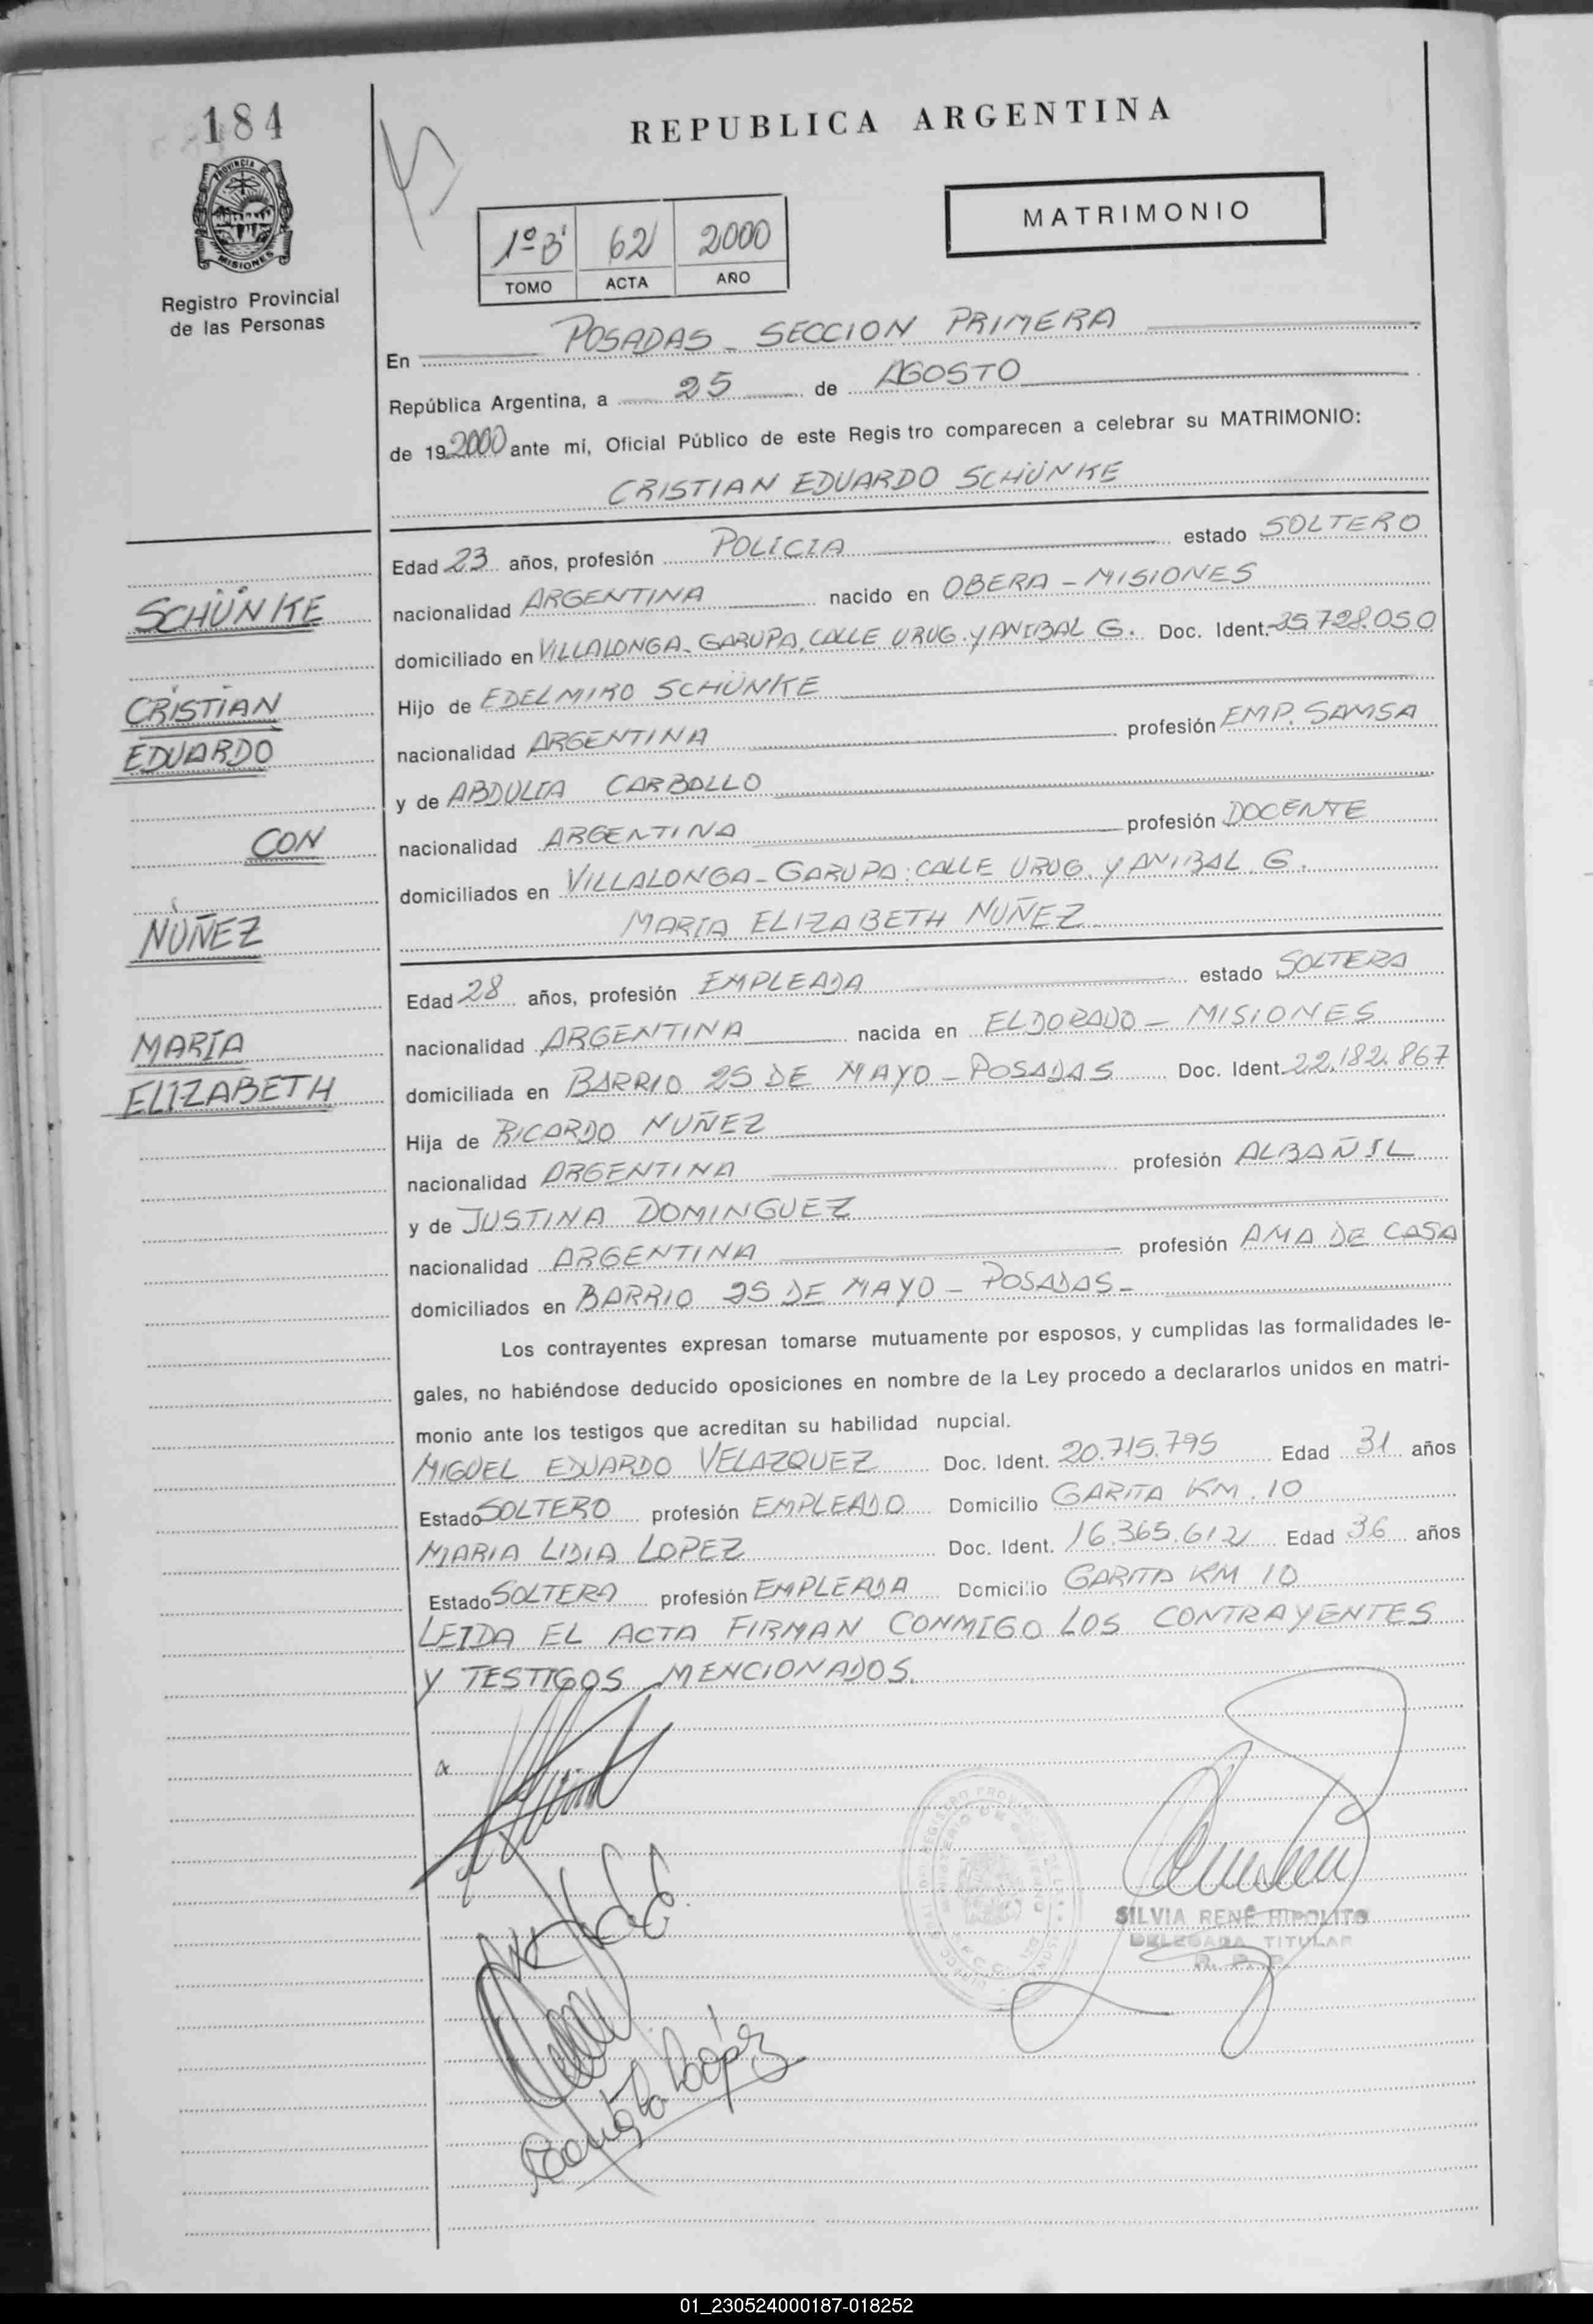 184
REPUBLICA ARGENTINA
PROVINCIA DE
MISIONES
Registro Provincial
de las Personas
1º B 62 2000
TOMO ACTA AÑO
MATRIMONIO
En POSADAS - SECCION PRIMERA
República Argentina, a 25 de AGOSTO
de 19 2000 ante mi, Oficial Público de este Regis tro comparecen a celebrar su MATRIMONIO:
CRISTIAN EDUARDO SCHÜNKE
Edad 23 años, profesión POLICIA estado SOLTERO
SCHÜNKE
nacionalidad ARGENTINA nacido en OBERA - MISIONES
domiciliado en VILLALONGA - GARUPA, CALLE URUG. Y ANIBAL G. Doc. Ident. 25.728.050
CRISTIAN
Hijo de EDELMIRO SCHÜNKE
EDUARDO
nacionalidad ARGENTINA profesión EMP. SAMSA
y de ABDULIA CARBALLO
CON
nacionalidad ARGENTINA profesión DOCENTE
domiciliados en VILLALONGA - GARUPA: CALLE URUG. Y ANIBAL G.
NUÑEZ
MARIA ELIZABETH NUÑEZ
Edad 28 años, profesión EMPLEADA estado SOLTERA
MARIA
nacionalidad ARGENTINA nacida en ELDORADO - MISIONES
ELIZABETH
domiciliada en BARRIO 25 DE MAYO - POSADAS Doc. Ident. 22.182.867
Hija de RICARDO NUÑEZ
nacionalidad ARGENTINA profesión ALBAÑIL
y de JUSTINA DOMINGUEZ
nacionalidad ARGENTINA profesión AMA DE CASA
domiciliados en BARRIO 25 DE MAYO - POSADAS -
Los contrayentes expresan tomarse mutuamente por esposos, y cumplidas las formalidades le-
gales, no habiéndose deducido oposiciones en nombre de la Ley procedo a declararlos unidos en matri-
monio ante los testigos que acreditan su habilidad nupcial.
MIGUEL EDUARDO VELAZQUEZ Doc. Ident. 20.715.795 Edad 31 años
Estado SOLTERO profesión EMPLEADO Domicilio GARITA KM. 10
MARIA LIDIA LOPEZ Doc. Ident. 16.365.612 Edad 36 años
Estado SOLTERA profesión EMPLEADA Domicilio GARITA KM 10
LEIDA EL ACTA FIRMAN CONMIGO LOS CONTRAYENTES
Y TESTIGOS MENCIONADOS.
SILVIA RENÉ HIPOLITO
DELEGADA TITULAR
López
01_230524000187-018252